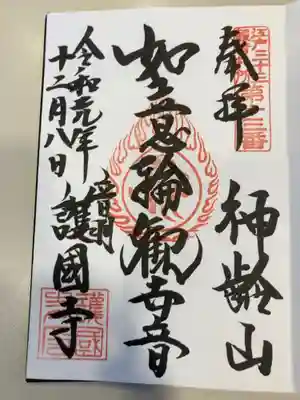 奉拝
江戸三十三
第十三番
神齢山
如意輪観世音
音羽
護國寺
令和元年
十二月八日
護國寺